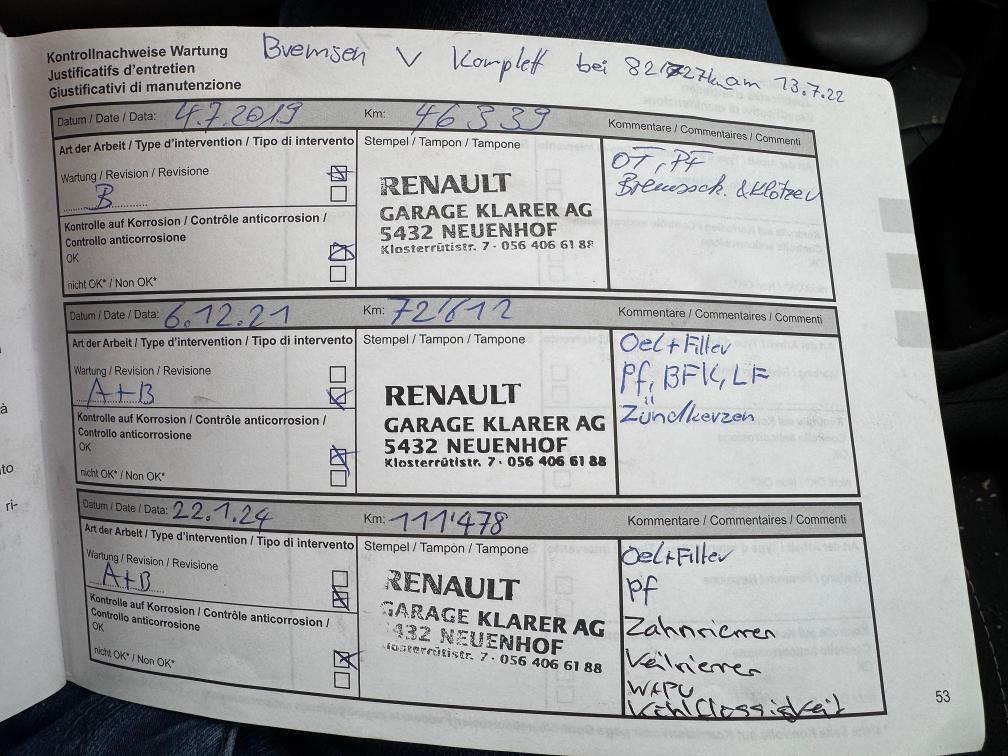 Kontrollnachweise Wartung
Justificatifs d'entretien
Giustificativi di manutenzione
Bremsen V Komplett bei 82727km am 13.7.22
Datum / Date / Data: 4.7.2019 Km: 46339 Kommentare / Commentaires / Commenti
Art der Arbeit / Type d'intervention / Tipo di intervento
Wartung / Revision / Revisione
B
Kontrolle auf Korrosion / Contrôle anticorrosion /
Controllo anticorrosione
OK
nicht OK* / Non OK*
Stempel / Tampon / Tampone
RENAULT
GARAGE KLARER AG
5432 NEUENHOF
Klosterrütistr. 7 · 056 406 61 88
OT, PF
Bremssch. & Klötze
Datum / Date / Data: 6.12.21 Km: 72'612 Kommentare / Commentaires / Commenti
Art der Arbeit / Type d'intervention / Tipo di intervento
Wartung / Revision / Revisione
A+B
Kontrolle auf Korrosion / Contrôle anticorrosion /
Controllo anticorrosione
OK
nicht OK* / Non OK*
Stempel / Tampon / Tampone
RENAULT
GARAGE KLARER AG
5432 NEUENHOF
Klosterrütistr. 7 · 056 406 61 88
Oel+Filter
Pf, BFK, LF
Zündkerzen
Datum / Date / Data: 22.1.24 Km: 111'478 Kommentare / Commentaires / Commenti
Art der Arbeit / Type d'intervention / Tipo di intervento
Wartung / Revision / Revisione
A+B
Kontrolle auf Korrosion / Contrôle anticorrosion /
Controllo anticorrosione
OK
nicht OK* / Non OK*
Stempel / Tampon / Tampone
RENAULT
GARAGE KLARER AG
5432 NEUENHOF
Klosterrütistr. 7 · 056 406 61 88
Oel+Filter
Pf
Zahnriemen
Keilriemen
WAPU
Kühlflüssigkeit
53